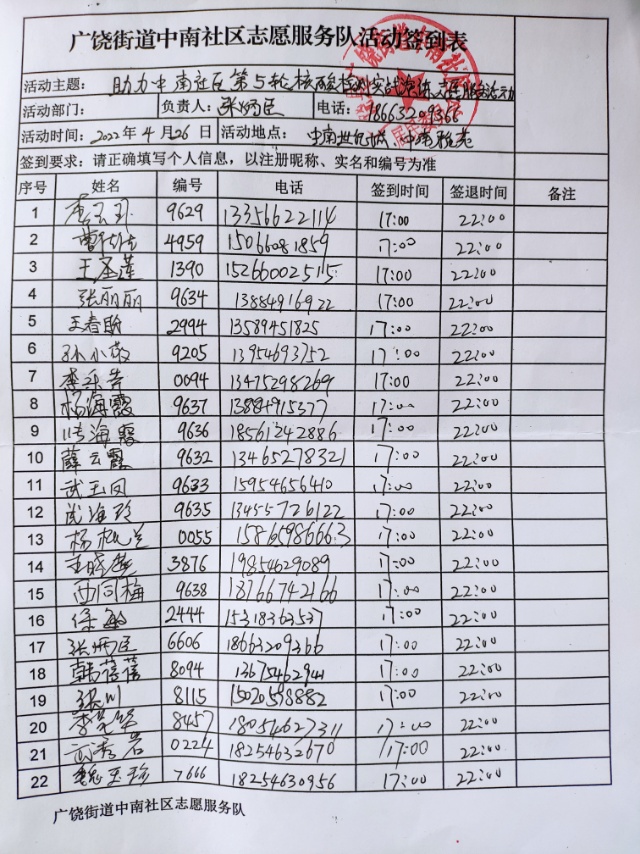 广饶街道中南社区志愿服务队活动签到表
活动主题： 助力中南社区第5轮核酸检测实战演练志愿服务活动
活动部门： 负责人：张炳臣 电话：18663209366
活动时间：2022年4月26日 活动地点： 中南世纪城、中南雅苑
签到要求：请正确填写个人信息，以注册昵称、实名和编号为准
序号 姓名 编号 电话 签到时间 签退时间 备注
1 9629 13356622114 17:00 22:00
2 4959 15066081859 17:00 22:00
3 王圣莲 1390 15266002515 17:00 22:00
4 张丽丽 9634 13884916922 17:00 22:00
5 王春盼 2994 13589451825 17:00 22:00
6 孙小敬 9205 13954693752 17:00 22:00
7 0094 13475298269 17:00 22:00
8 杨海霞 9637 13884915377 17:00 22:00
9 张海霞 9636 18561242886 17:00 22:00
10 薛云霞 9632 13465278321 17:00 22:00
11 武玉凤 9633 15954656410 17:00 22:00
12 武海玲 9635 13455726122 17:00 22:00
13 杨 0055 15865986663 17:00 22:00
14 3876 19854629089 17:00 22:00
15 9638 18766742166 17:00 22:00
16 徐敏 2444 15318363537 17:00 22:00
17 张炳臣 6606 18663209366 17:00 22:00
18 韩蓓蓓 8094 13675462941 17:00 22:00
19 8115 15020598882 17:00 22:00
20 8457 18054627311 17:00 22:00
21 0224 18254632670 17:00 22:00
22 魏玉珍 7666 18254630956 17:00 22:00
广饶街道中南社区志愿服务队